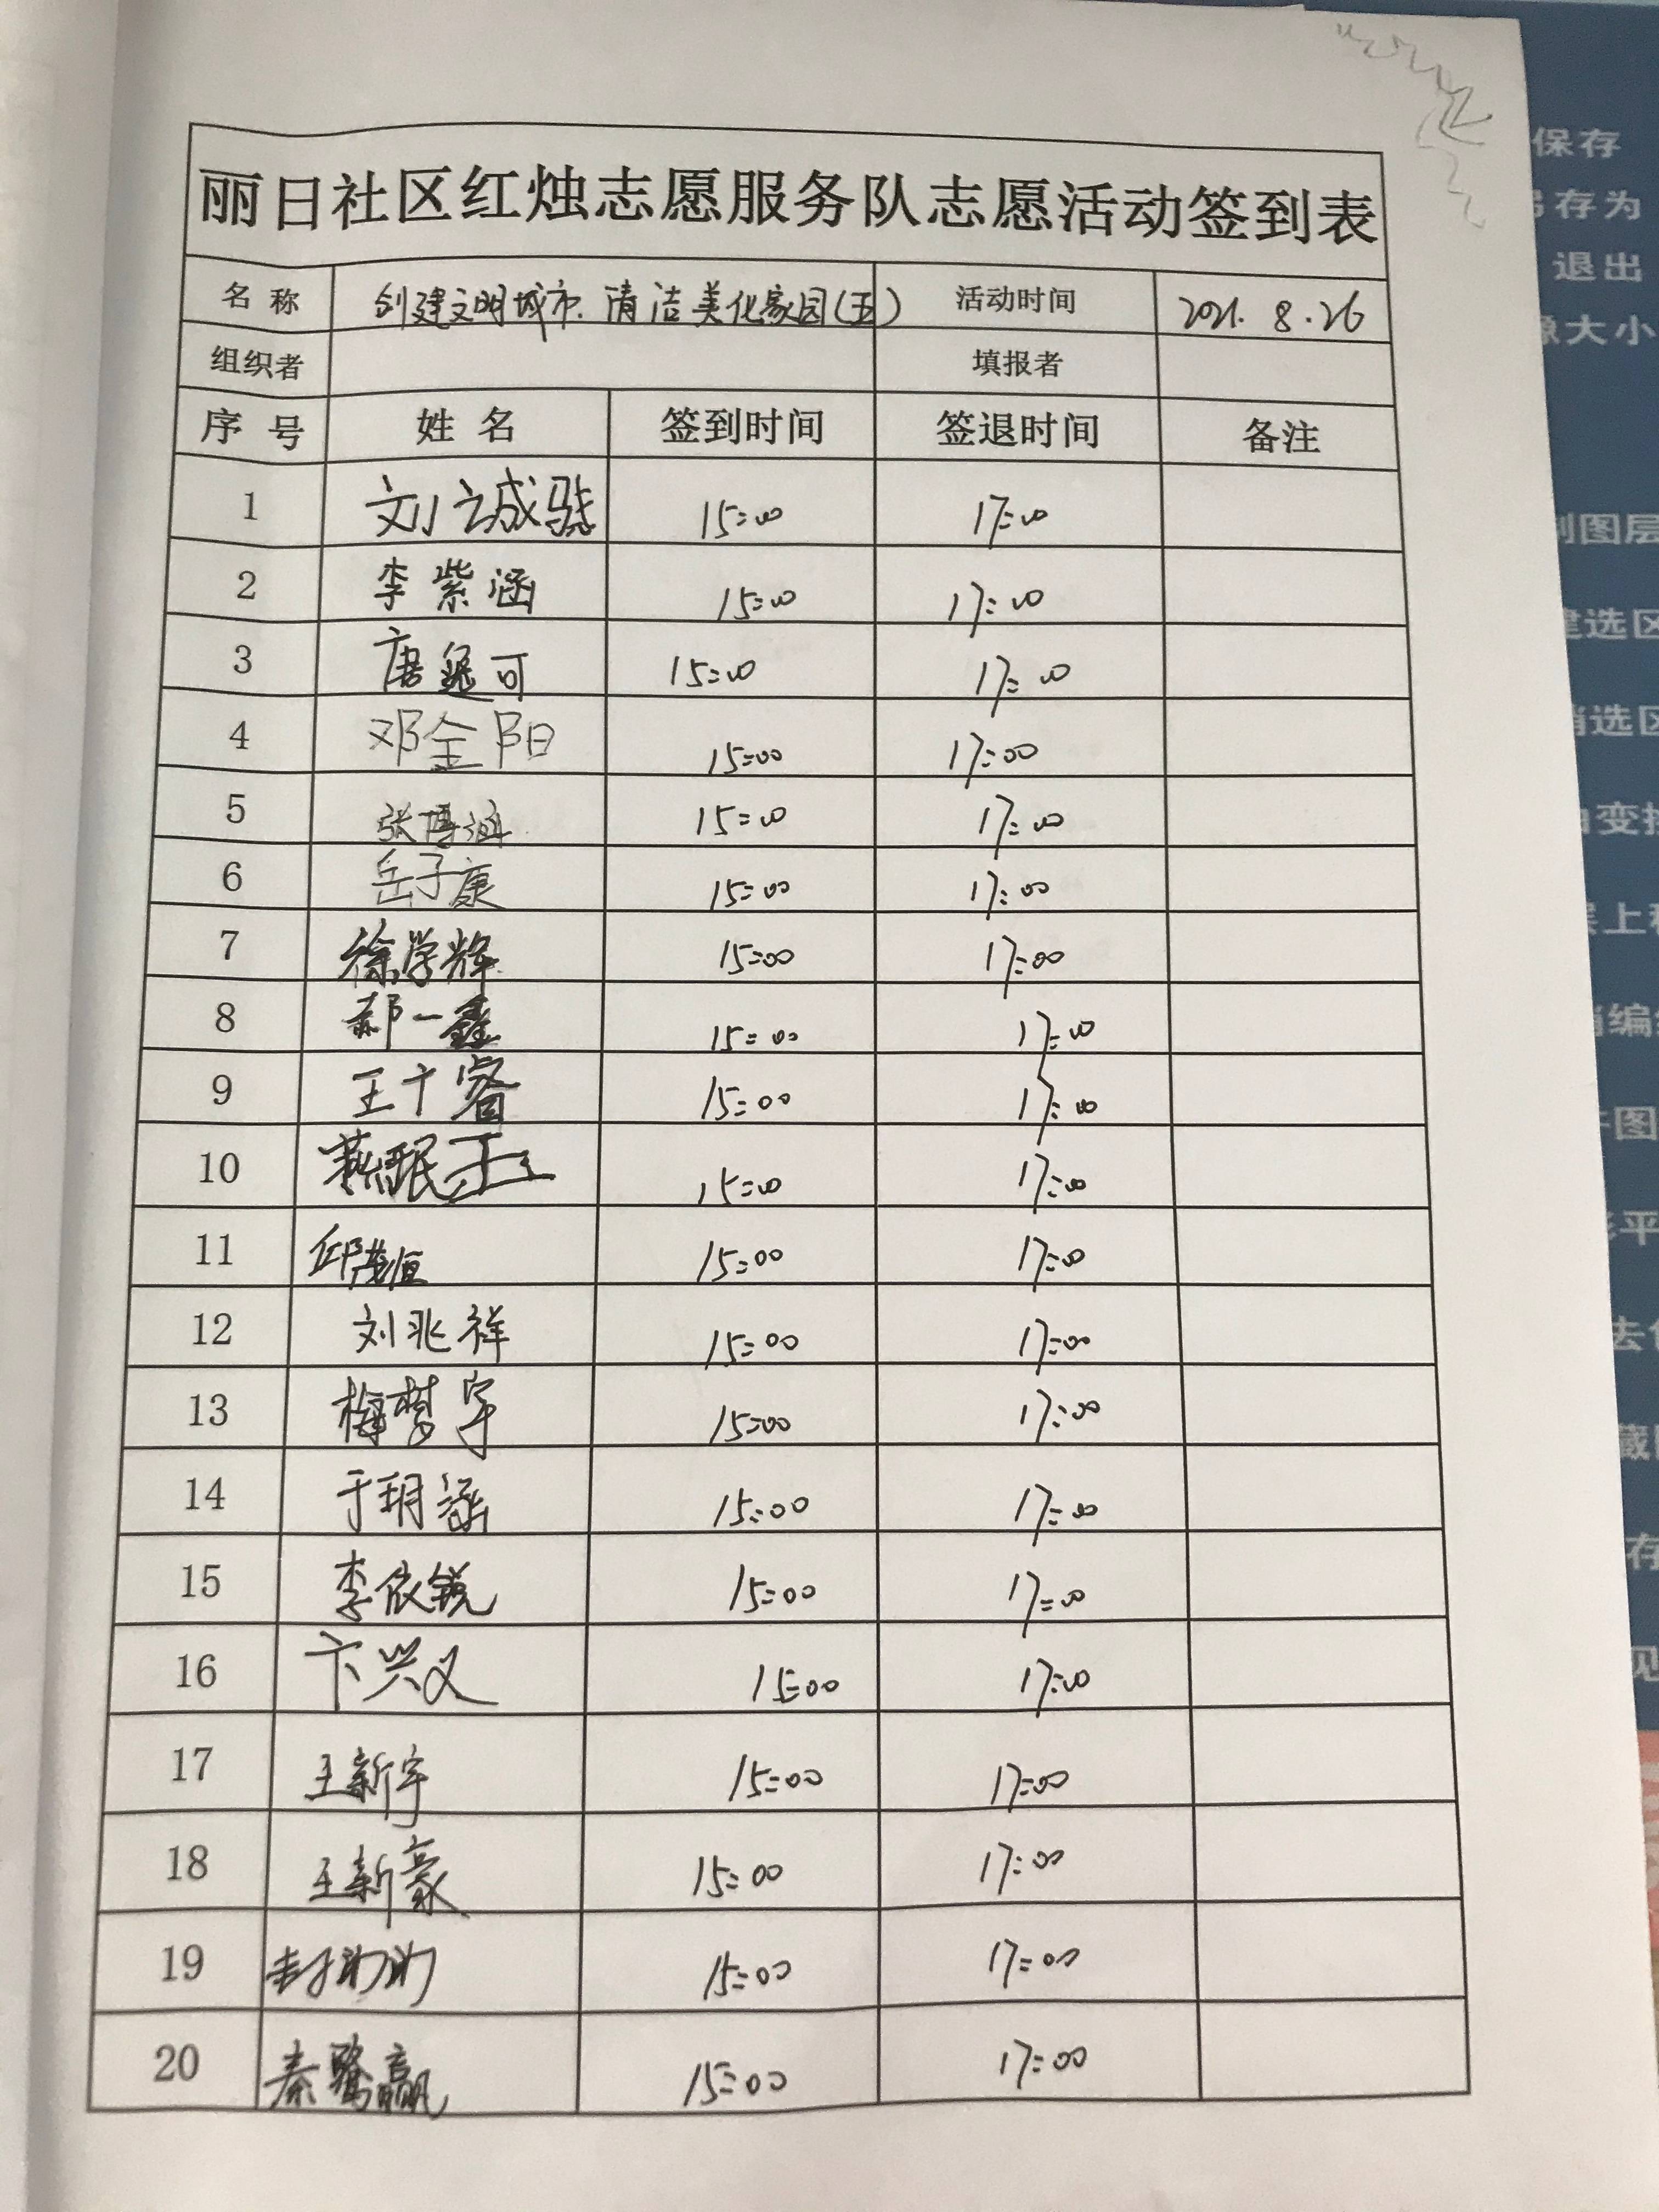 丽日社区红烛志愿服务队志愿活动签到表
名称 创建文明城市.清洁美化家园(五) 活动时间 2021.8.26
组织者 填报者
序号 姓名 签到时间 签退时间 备注
1 刘诚骁 15:00 17:00
2 李紫涵 15:00 17:00
3 唐 可 15:00 17:00
4 邓全阳 15:00 17:00
5 张博涵 15:00 17:00
6 岳子康 15:00 17:00
7 徐学辉 15:00 17:00
8 郝一鑫 15:00 17:00
9 王十睿 15:00 17:00
10 15:00 17:00
11 邱茂恒 15:00 17:00
12 刘兆祥 15:00 17:00
13 梅梦宇 15:00 17:00
14 于玥涵 15:00 17:00
15 李依锐 15:00 17:00
16 卞兴又 15:00 17:00
17 王新宇 15:00 17:00
18 王新豪 15:00 17:00
19 15:00 17:00
20 秦鹭赢 15:00 17:00
保存
另存为
退出
像大小
制图层
建选区
消选区
由变换